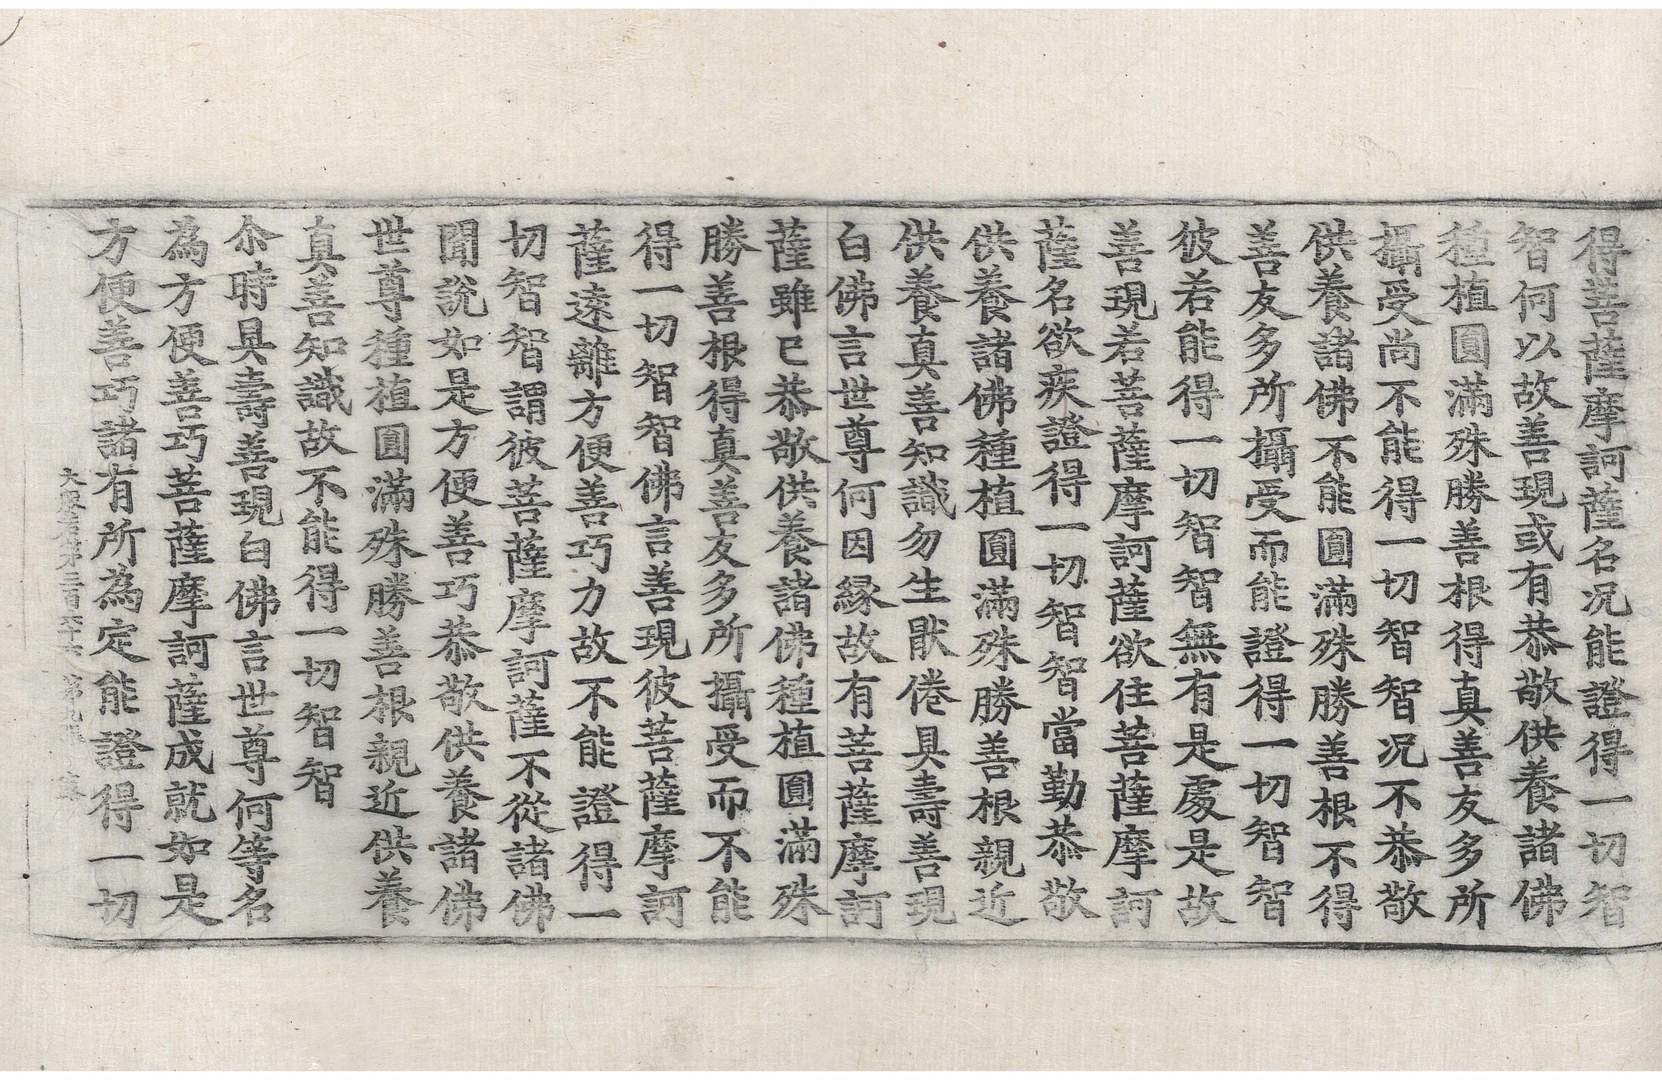 得菩薩摩訶薩名况能證得一切智
智何以故善現或有恭敬供養諸佛
種植圓滿殊勝善根得真善友多所
攝受尚不能得一切智智况不恭敬
供養諸佛不能圓滿殊勝善根不得
善友多所攝受而能證得一切智智
彼若能得一切智智無有是處是故
善現若菩薩摩訶薩欲住菩薩摩訶
薩名欲疾證得一切智智當勤恭敬
供養諸佛種植圓滿殊勝善根親近
供養真善知識勿生猒倦具壽善現
白佛言世尊何因緣故有菩薩摩訶
薩雖已恭敬供養諸佛種植圓滿殊
勝善根得真善友多所攝受而不能
得一切智智佛言善現彼菩薩摩訶
薩遠離方便善巧力故不能證得一
切智智謂彼菩薩摩訶薩不從諸佛
聞說如是方便善巧恭敬供養諸佛
世尊種植圓滿殊勝善根親近供養
真善知識故不能得一切智智
尒時具壽善現白佛言世尊何等名
為方便善巧菩薩摩訶薩成就如是
方便善巧諸有所為定能證得一切
大般若第三百六十六